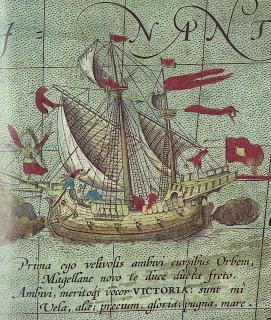 I- NPNT
Prima ego velivolis ambivi cursibus Orbem,
Magellane novo te duce ducta freto.
Ambivi, meritoq; vocor VICTORIA: sunt mi
Vela, alæ; precium, gloria; pugna, mare.